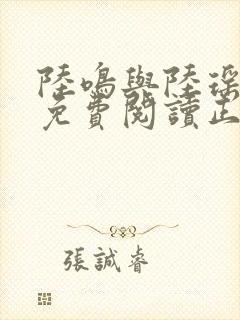 陸鳴與陸瑤
免費閱讀正
張誠睿